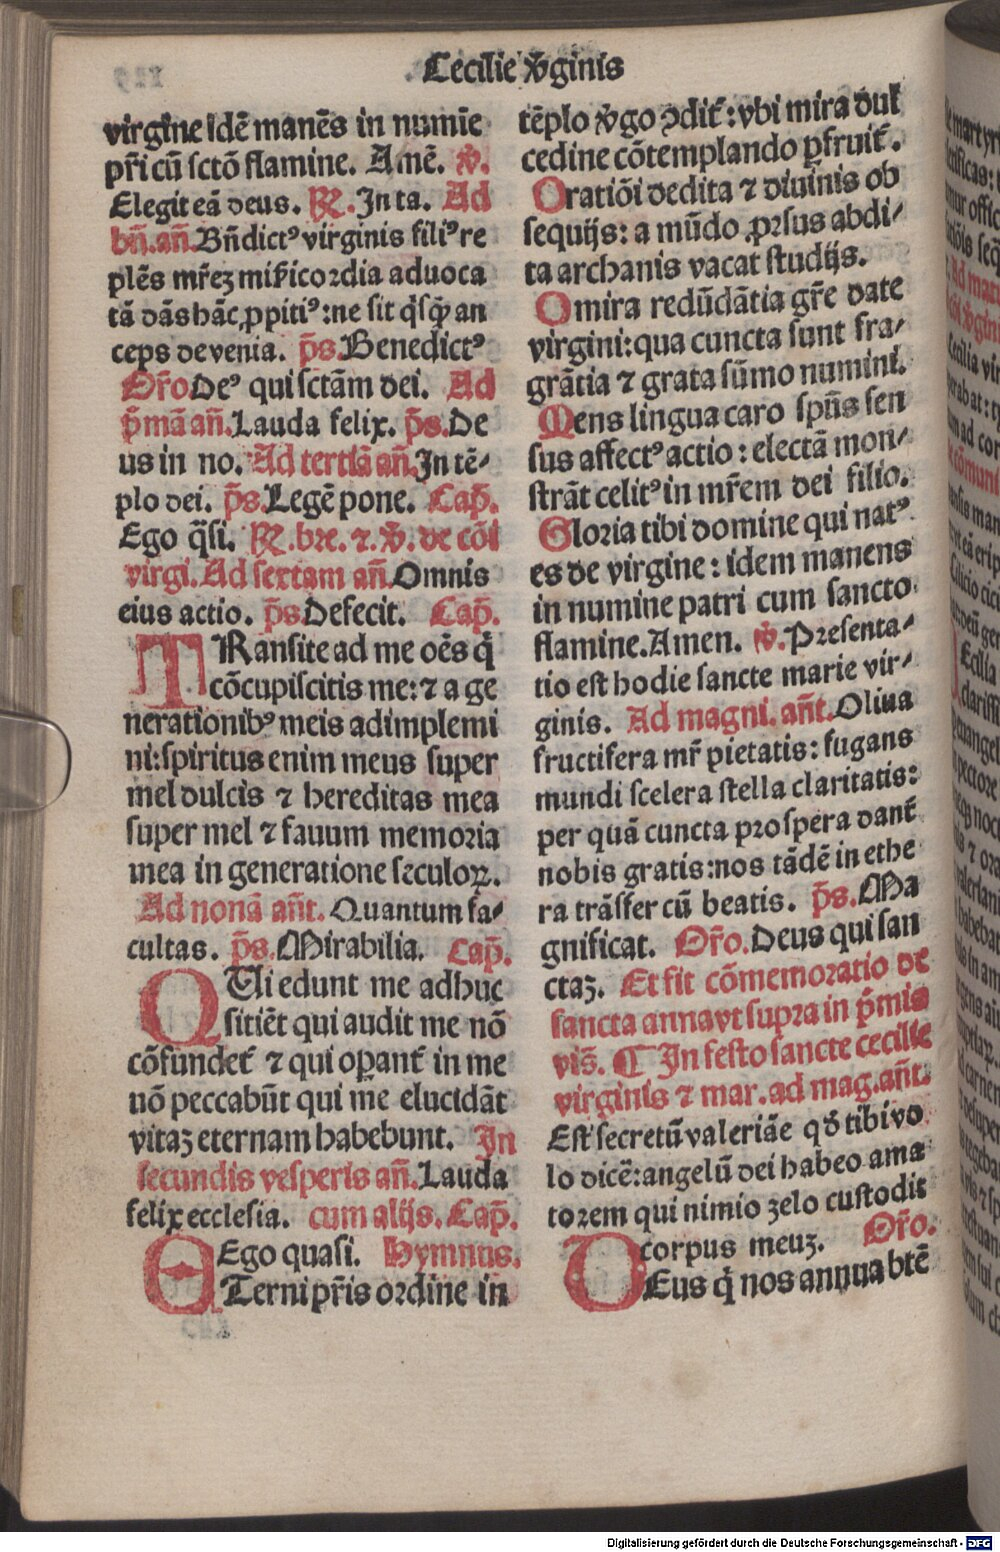 Cecilie v̾ginis
virgine idē manēs in numīe
pr̄i cū sctō flamine. Amē. v̾.
Elegit eā deus. R̷. In ta. Ad
bn̄. an̄. Bn̄dictꝰ virginis filiꝰ re
plēs mr̄eȝ mīȝicordia aduoca
tā dās hāc ꝓpitiꝰ: ne sit q̇sq̄ꝫ an
ceps de venia. p̄s. Benedictꝰ
Or̄o Deꝰ qui sctām dei. Ad
p̄mā an̄. Lauda felix. p̄s. De
us in no. Ad tertiā an̄. In tē⸗
plo dei. p̄s. Legē pone. Cap̄.
Ego q̄si. R̷. bre. ⁊. v̾. de cōi
virgi. Ad sextam an̄. Omnis
eius actio. p̄s. Defecit. Cap̄.
TRansite ad me oēs q̇
cōcupiscitis me: ⁊ a ge
nerationibꝰ meis adimplemi
ni: spiritus enim meus super
mel dulcis ⁊ hereditas mea
super mel ⁊ fauum memoria
mea in generatione seculoꝝ.
Ad nonā an̄t. Quantum fa⸗
cultas. p̄s. Mirabilia. Cap̄.
QUi edunt me adhuc
sitiēt qui audit me nō
cōfundet̄ ⁊ qui oꝑant̄ in me
nō peccabūt qui me elucidāt
vitaȝ eternam habebunt. In
secundis vesperis an̄. Lauda
felix ecclesia. cum alijs. Cap̄.
Ego quasi. Hymnus.
ETerni pr̄is ordine in
tēplo v̾go ↄdit̄: vbi mira dul
cedine cōtemplando ꝑfruit̄.
Oratiōi dedita ⁊ diuinis ob
sequijs: a mūdo ꝓrsus abdi⸗
ta archanis vacat studijs.
O mira redūdātia gr̄e date
virgini: qua cuncta sunt fra⸗
grātia ⁊ grata sūmo numini.
Mens lingua caro spūs sen
sus affectꝰ actio: electā mon⸗
strāt celitꝰ in mr̄em dei filio.
Gloria tibi domine qui natꝰ
es de virgine: idem manens
in numine patri cum sancto
flamine. Amen. v̾. Presenta⸗
tio est hodie sancte marie vir⸗
ginis. Ad magni. an̄t. Oliua
fructifera mr̄ pietatis: fugans
mundi scelera stella claritatis:
per quā cuncta prospera dant̄
nobis gratis: nos tādē in ethe
ra trāsfer cū beatis. p̄s. Ma
gnificat. Or̄o. Deus qui san
ctaȝ. Et fit cōmemoratio de
sancta anna vt supra in p̄mis
vis̄. ¶ In festo sancte cecilie
virginis ⁊ mar. ad mag. an̄t.
Est secretū valeriāe qđ tibi vo
lo dicē: angelū dei habeo ama
torem qui nimio zelo custodit
corpus meuȝ. Or̄o.
DEus q̇ nos annua btē
Digitalisierung gefördert durch die Deutsche Forschungsgemeinschaft - DFG